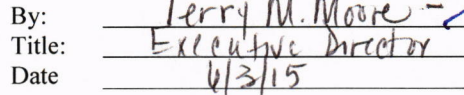 By: Terry M. Moore -
Title: Executive Director
Date 6/3/15